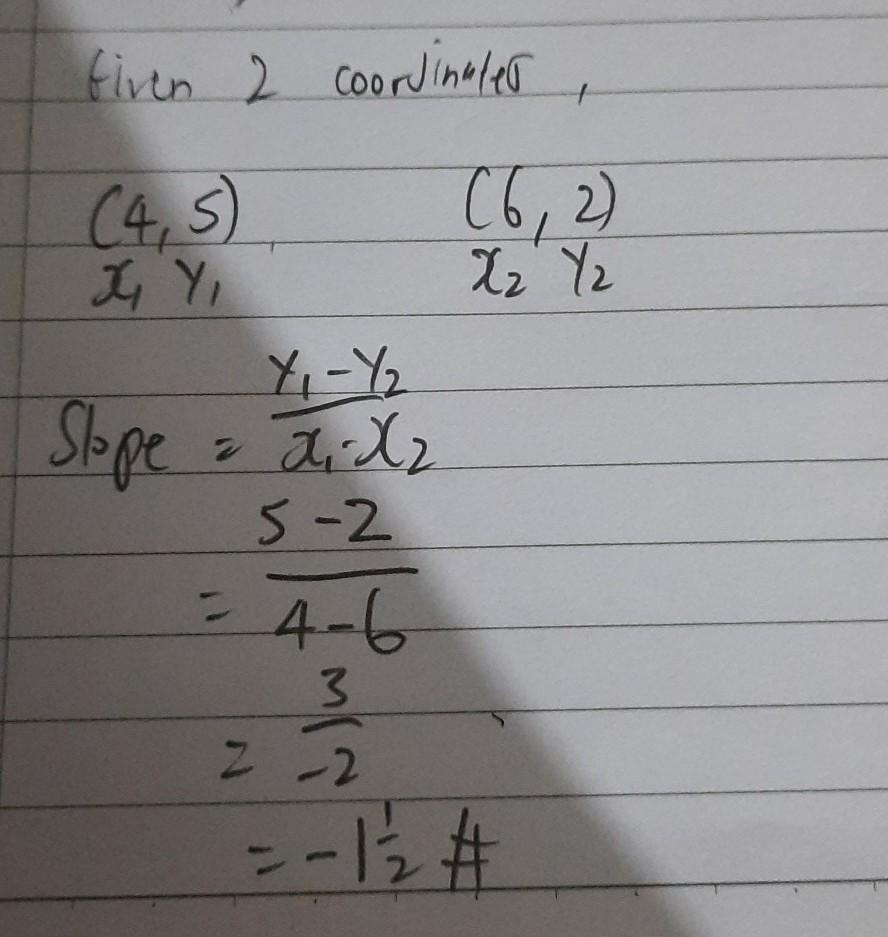 Given 2 coordinates,
(4, 5) (6, 2)
x₁ y₁ x₂ y₂
y₁ - y₂
Slope = x₁ - x₂
5 - 2
=
4 - 6
3
= -2
= -1 1/2 #